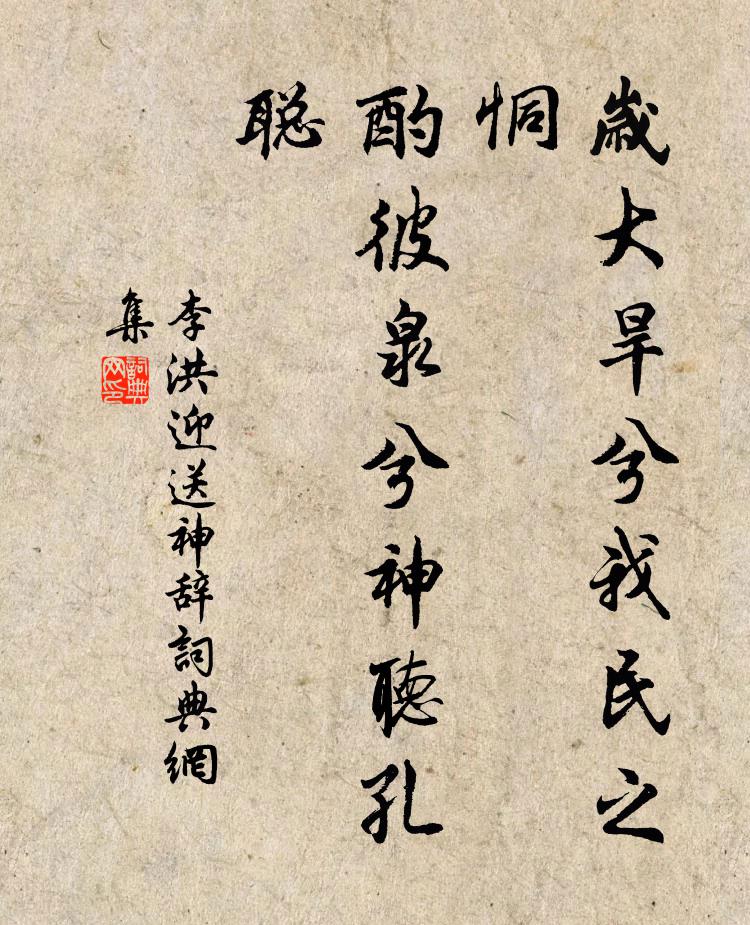 歲大旱兮我民之
恫
酌彼泉兮神聽孔
聪
李洪迎送神辞詞典網
集
詞典
网印